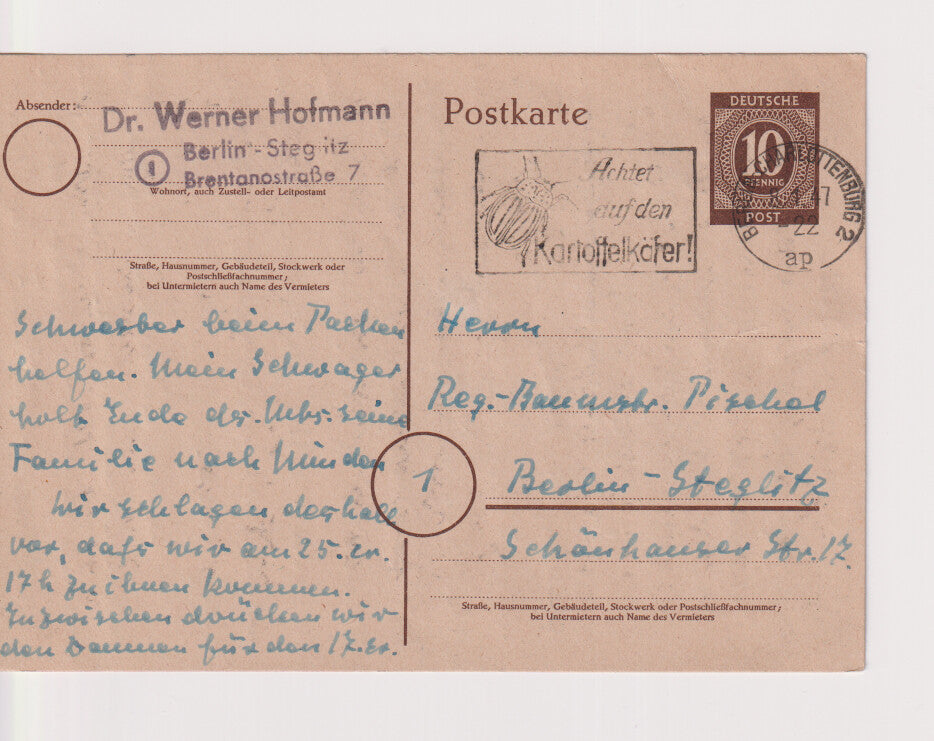 Absender:
Dr. Werner Hofmann
1 Berlin-Steglitz
Brentanostraße 7
Wohnort, auch Zustell- oder Leitpostamt
Straße, Hausnummer, Gebäudeteil, Stockwerk oder
Postschließfachnummer;
bei Untermietern auch Name des Vermieters
Schwester beim Packen
helfen. Mein Schwager
holt Ende ds. Mts. seine
Familie nach Münden
Wir schlagen deshalb
vor, daß wir am 25. er.
17h zu ihnen kommen.
Inzwischen drücken wir
den Daumen für den 17. er.
Postkarte
DEUTSCHE
10
PFENNIG
POST
Achtet
auf den
Kartoffelkäfer!
CHARLOTTENBURG 2
47
-22
ap
Herrn
Reg.-Baumstr. Pischel
1
Berlin-Steglitz
Schönhauser Str. 17.
Straße, Hausnummer, Gebäudeteil, Stockwerk oder Postschließfachnummer;
bei Untermietern auch Name des Vermieters